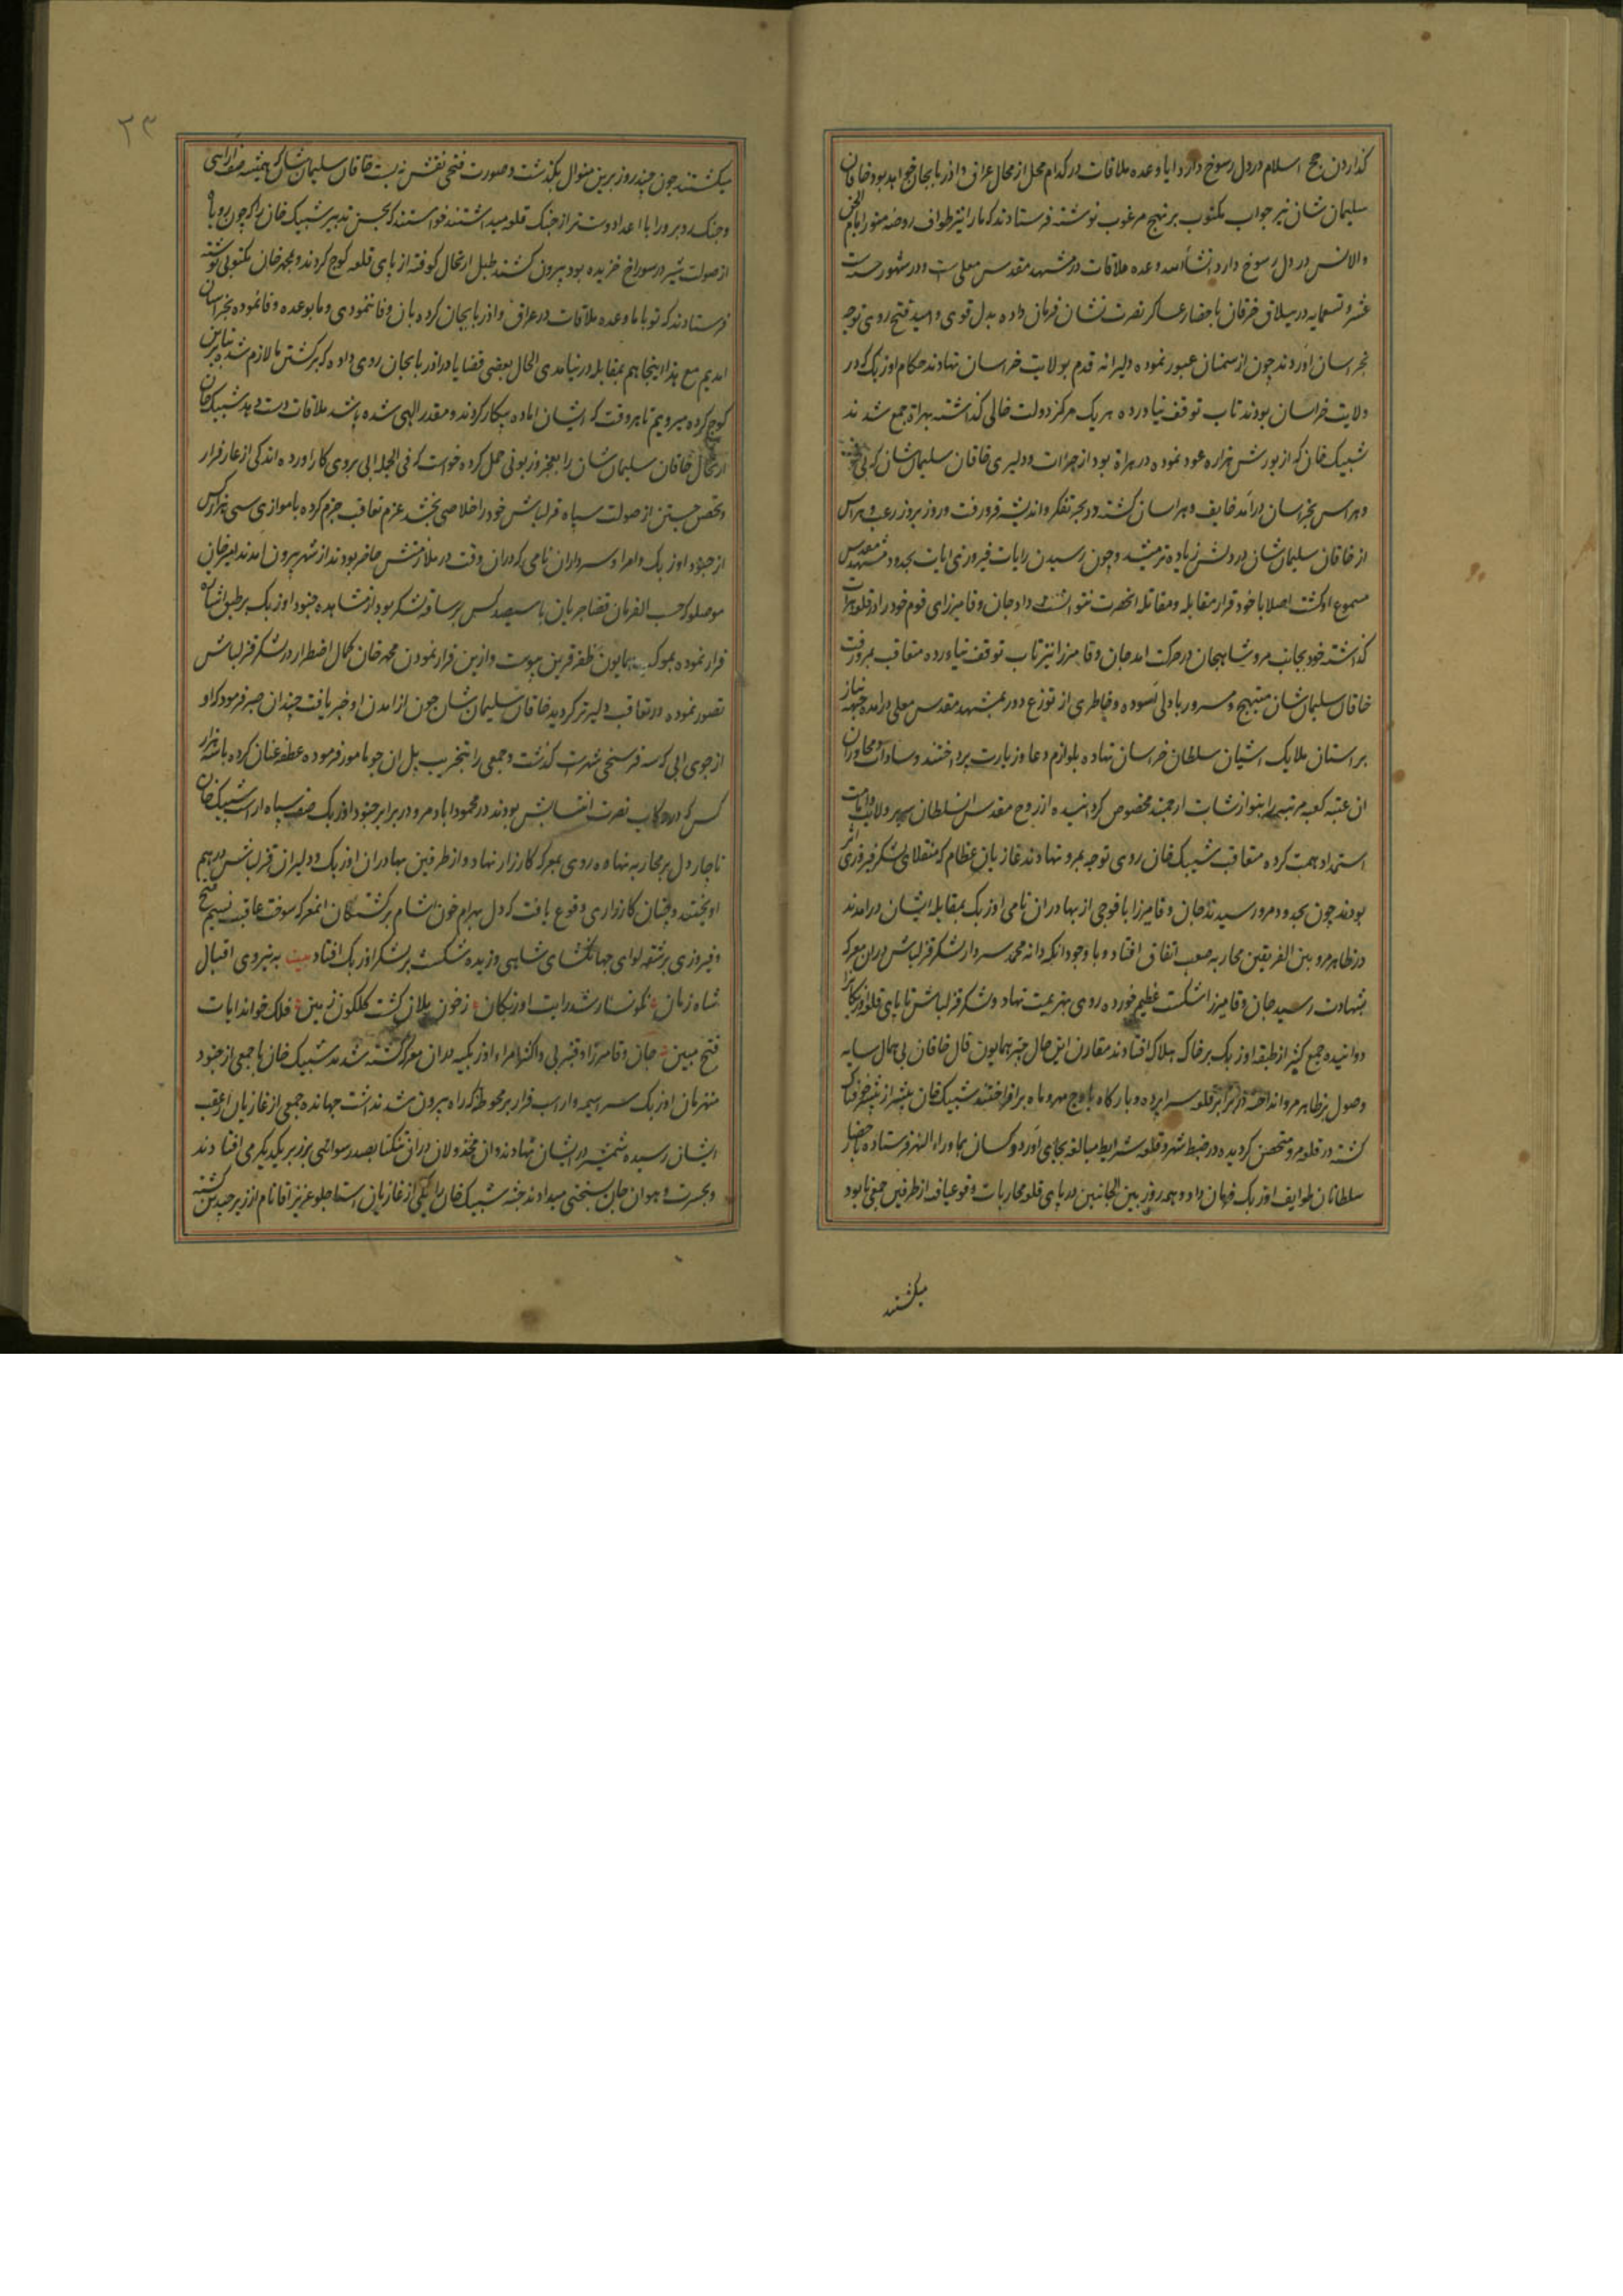 گذاردن حج اسلام در دل رسوخ دارد ایا وعده ملاقات در کدام محل از محال عراق و اذربایجان خواهد بود خاقان
سلیمان شان نیز جواب مکتوب بر نهج مرغوب نوشته فرستادند که ما را نیز طواف روضه منوره امام الجن
والانس در دل رسوخ دارد انشاالله وعده ملاقات در مشهد مقدس معلی است و در شهور سنه ست
عشر و تسعمایه در ییلاق خرقان باحضار عساکر نصرت نشان فرمان داده بدل قوی و امید فتح روی توجه
بخراسان اوردند چون از سمنان عبور نموده دلیرانه قدم بولایت خراسان نهادند حکام اوزبک که در
ولایت خراسان بودند تاب توقف نیاورده هر یک مرکز دولت خالی گذاشته بهراة جمع شدند
شیبک خان که از یورش هزاره عود نموده در هراة بود از جرات و دلیری خاقان سلیمان شان که بی
وهراس بخراسان درامد خایف و هراسان گشته در بحر تفکر و اندیشه فرو رفت و روز بروز رعب و هراس
از خاقان سلیمان شان در دلش زیاده تر میشد و چون رسیدن رایات فیروزی ایات بحدود مشهد مقدس
مسموع او گشت اصلا با خود قرار مقابله و مقاتله انحضرت نتوانست داد جان وفا میرزای قوم خود را در قلعه هرات
گذاشته خود بجانب مرو شاهیجان در حرکت امد جان وفا میرزا نیز تاب توقف نیاورده متعاقب بمرو رفت
خاقان سلیمان شان مبتهج و مسرور با دلی اسوده و خاطری از توزع دور بمشهد مقدس معلی درامده جبهه نیاز
بر استان ملایک اشیان سلطان خراسان نهاده بلوازم دعا و زیارت پرداختند و سادات و مجاوران
ان عتبه کعبه مرتبه را بنوازشات ارجمند مخصوص گردانیده از روح مقدس ان سلطان سریر ولایت و امامت
استمداد همت کرده متعاقب شیبک خان روی توجه بمرو نهادند غازیان عظام که منقلای لشکر فیروزی اثر
بودند چون بحدود مرو رسیدند جان وفا میرزا با فوجی از بهادران نامی اوزبک بمقابله ایشان درامدند
در ظاهر مرو بین الفریقین محاربه صعب اتفاق افتاد و با وجود انکه دانه محمد سردار لشکر قزلباش در ان معرکه
بشهادت رسید جان وفا میرزا شکست عظیم خورده روی بهزیمت نهاد و لشکر قزلباش تا پای قلعه اوزبکانرا
دوانیده جمع کثیر از طبقه اوزبک بر خاک هلاک افتادند مقارن این حال چتر همایون فال خاقان بی همال سایه
وصول بر ظاهر مرو انداخته در برابر قلعه سراپرده و بارگاه باوج مهر و ماه برافراختند شیبک خان بیشتر از پیشتر خوفناک
گشته در قلعه مرو متحصن گردیده در ضبط شهر و قلعه شرایط مبالغه بجای اورد و کسان بماوراء النهر فرستاده باحضار
سلطانان طوایف اوزبک فرمان داد و همه روز بین الجانبین در پای قلعه محاربات وقوع یافته از طرفین جمعی نابود
میگشتند
۲۳
میگشتند چون چند روز برین منوال بگذشت و صورت فتحی نقش نه بست خاقان سلیمان شان که همیشه صف ارایی
و جنگ رو برو را با اعدا دوست تر از جنگ قلعه میداشتند خواستند که بحسن تدبیر شیبک خان را که چون روباه
از صولت شیر در سوراخ خزیده بود بیرون کشند طبل ارتحال کوفته از پای قلعه کوچ کردند و بمحمد خان مکتوبی نوشته
فرستادند که تو با ما وعده ملاقات در عراق و اذربایجان کرده بان وفا ننمودی و ما بوعده وفا نموده بخراسان
امدیم مع هذا اینجا هم بمقابله در نیامدی الحال بعضی قضایا در اذربایجان روی داده که برگشتن ما لازم شده بنابرین
کوچ کرده میرویم تا هر وقت که ایشان اماده پیکار گردند و مقدر الهی شده باشد ملاقات دست دهد شیبک خان
ارتحال خاقان سلیمان شان را بعجز و زبونی حمل کرده خواست که فی الجمله ابی بروی کار اورده اندکی از عار فرار
و تحصن جستن از صولت سپاه قزلباش خود را خلاصی بخشد عزم تعاقب جزم کرده با موازی سی هزار کس
از جنود اوزبک و امرا و سرداران نامی که در ان وقت در ملازمتش حاضر بودند از شهر بیرون امدند امیر خان
موصلو که حسب الفرمان قضا جریان با سیصد کس بر ساقه لشکر بود از مشاهده جنود اوزبک بر طبق اشاره
فرار نموده بموکب همایون ظفر قرین پیوست و ازین فرار نمودن محمد خان کمال اضطرار در لشکر قزلباش
تصور نموده در تعاقب دلیرتر گردید خاقان سلیمان شان چون از امدن او خبر یافت چندان صبر فرمود که او
از جوی ابی که سه فرسخی شهر است گذشت و جمعی را بتخریب پل ان جو مامور فرموده عطف عنان کرده با سه هزار
کس که در رکاب نصرت انتسابش بودند در محموداباد مرو در برابر جنود اوزبک صف سپاه اراست شیبک خان
ناچار دل بر محاربه نهاده روی بمعرکه کارزار نهاد و از طرفین بهادران اوزبک و دلیران قزلباش در هم
اویختند و چنان کارزاری وقوع یافت که دل بهرام خون اشام بر کشتگان انمعرکه سوخت عاقبت نسیم فتح
و فیروزی بر شقه لوای جهانگشای شاهی وزیده شکست بر لشکر اوزبک افتاد بیت به نیروی اقبال
شاه زمان نگونسار شد رایت اوزبکان ز خون یلان گشت گلگون زمین فلک خواند ایات
فتح مبین جان وفا میرزا و قنبر بی و اکثر امراء اوزبکیه در ان معرکه کشته شدند شیبک خان با جمعی از جنود
منهزمان اوزبک سراسیمه وار اسب فرار بر محوطه که راه بیرون شد نداشت جهانده جمعی از غازیان از عقب
ایشان رسیده شمشیر در ایشان نهادند و ان مخذولان در ان تنگنا بصد رسوائی بر زبر یکدیگر می افتادند
و بحسرت و هوان جان بسختی میدادند جثه شیبک خان را یکی از غازیان استاجلو عزیز اقا نام از زیر چندین کشته